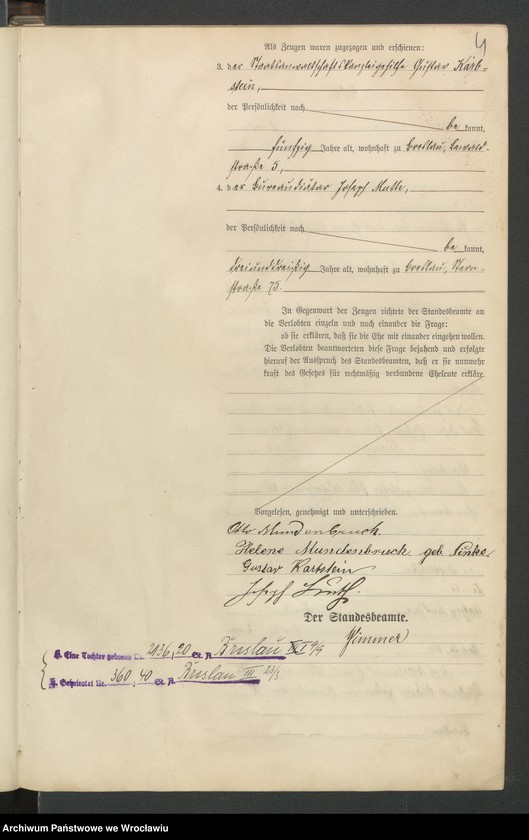 4
Als Zeugen waren zugezogen und erschienen:
3. der Staatsanwaltschaftskanzleigehilfe Gustav Kart-
stein,
der Persönlichkeit nach
be kannt,
fünfzig Jahre alt, wohnhaft zu Breslau,
straße 5,
4. der Bureaudiätar Joseph Muth,
der Persönlichkeit nach
be kannt,
dreiunddreißig Jahre alt, wohnhaft zu Breslau, Stern-
straße 75.
In Gegenwart der Zeugen richtete der Standesbeamte an
die Verlobten einzeln und nach einander die Frage:
ob sie erklären, daß sie die Ehe mit einander eingehen wollen.
Die Verlobten beantworteten diese Frage bejahend und erfolgte
hierauf der Ausspruch des Standesbeamten, daß er sie nunmehr
kraft des Gesetzes für rechtmäßig verbundene Eheleute erkläre.
Vorgelesen, genehmigt und unterschrieben.
Otto Mundenbruck.
Helene Mundenbruck geb.
Gustav Kartstein
Joseph Muth.
Der Standesbeamte.
Eine Tochter geboren Nr. 2136, 20 St. A. Breslau
Geheiratet Nr. 360, 40 St. A. Breslau III
Archiwum Państwowe we Wrocławiu